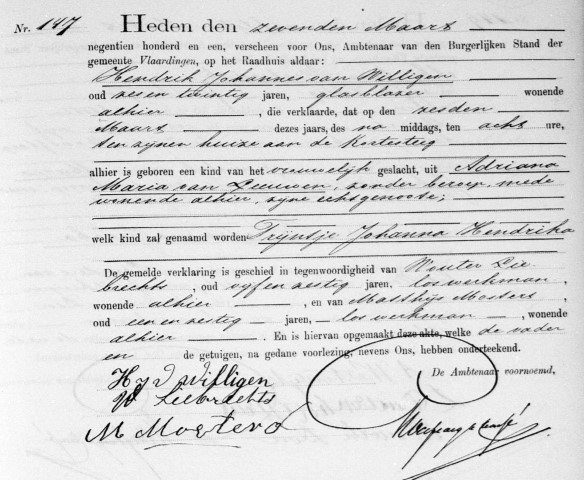 Nr. 147 Heden den zevenden Maart
negentien honderd en een, verscheen voor Ons, Ambtenaar van den Burgerlijken Stand der
gemeente Vlaardingen, op het Raadhuis aldaar:
Hendrik Johannes van Willigen
oud zes en twintig jaren, glasblazer wonende
alhier, die verklaarde, dat op den zesden
Maart dezes jaars, des na middags, ten acht ure,
ten zijnen huize aan de Kortesteeg
alhier is geboren een kind van het vrouwelijk geslacht, uit Adriana
Maria van Leeuwen, zonder beroep, mede
wonende alhier, zijne echtgenoote;
welk kind zal genaamd worden Trijntje Johanna Hendrika
De gemelde verklaring is geschied in tegenwoordigheid van Wouter Lie
brechts, oud vijf en zestig jaren, los werkman,
wonende alhier, en van Matthijs Mosterd,
oud een en zestig jaren, los werkman, wonende
alhier. En is hiervan opgemaakt deze akte, welke de vader
en de getuigen, na gedane voorlezing, nevens Ons, hebben onderteekend.
De Ambtenaar voornoemd,
H J v Willigen
W Liebrechts
M Mosterd